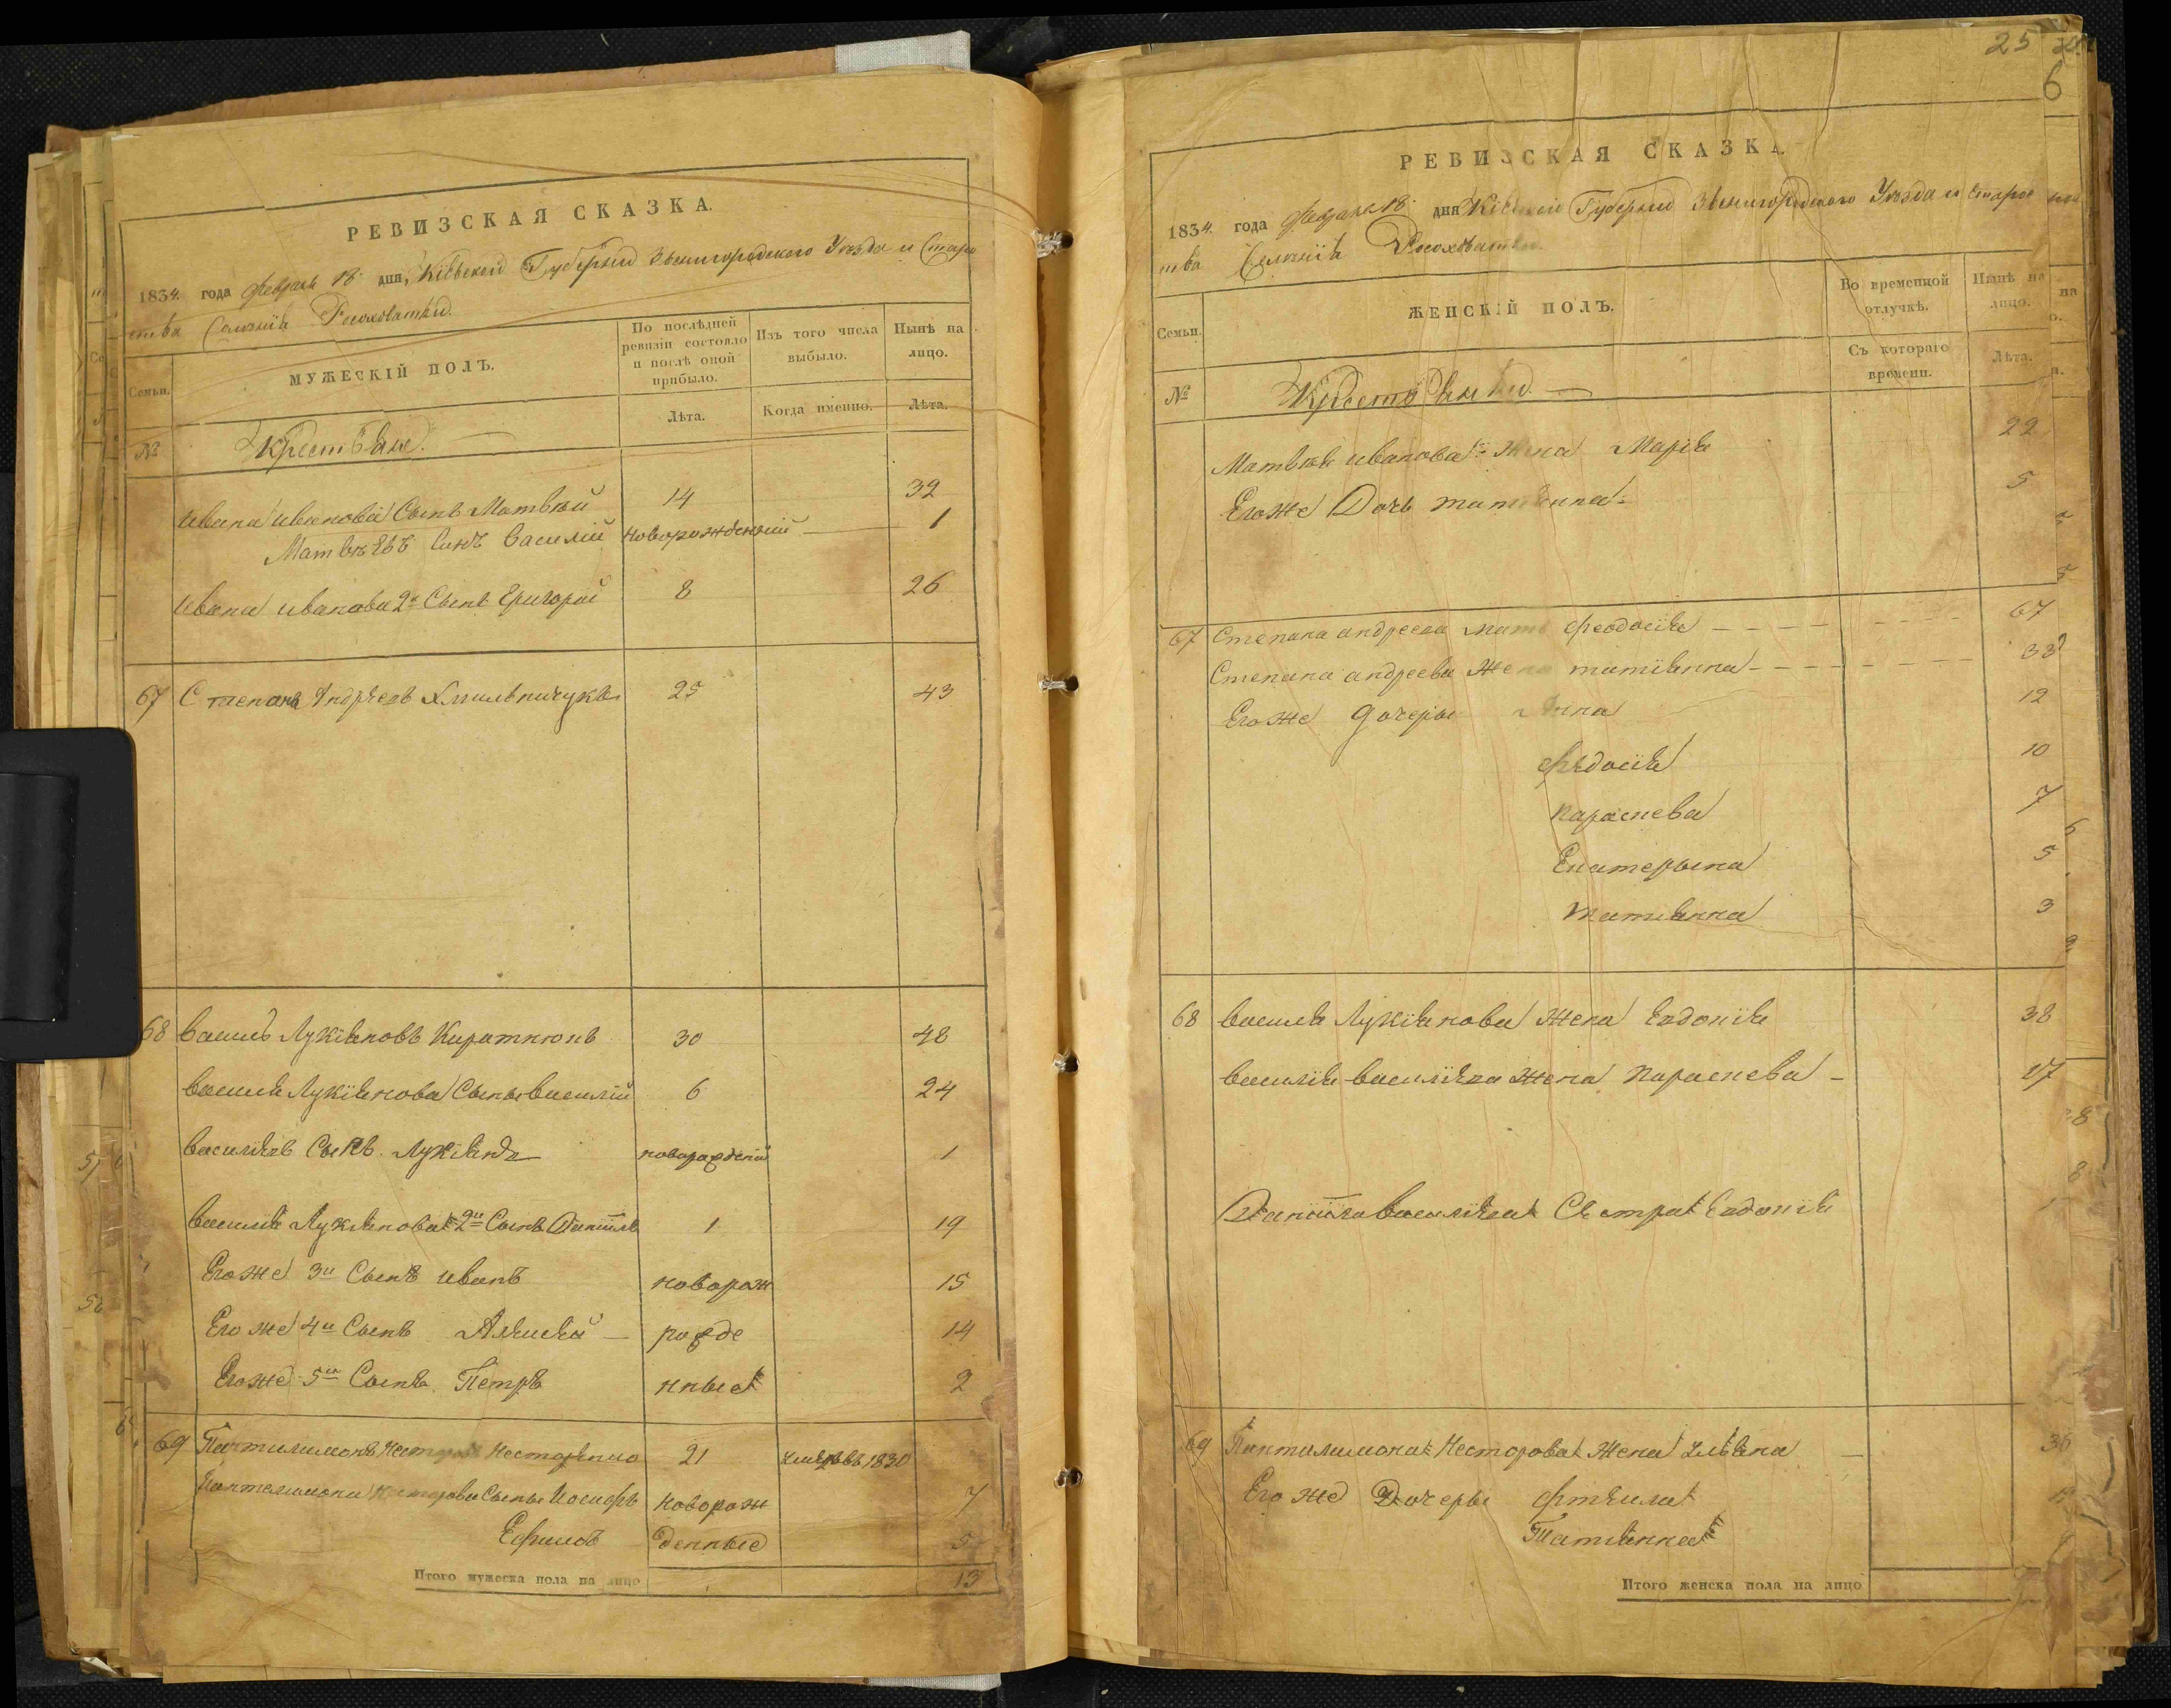 РЕВИЗСКАЯ СКАЗКА.
1834. года февраля 18 дня, Кіевской Губерніи Звенигородского Уѣзда и Старо
ства Селенія Росоховатки.
Семьи.
МУЖЕСКІЙ ПОЛЪ.
По послѣдней ревизіи состояло и послѣ оной прибыло.
Изъ того числа выбыло.
Нынѣ на лицо.
№
Крестьяне.
Лѣта.
Когда именно.
Лѣта.
Ивана Иванова Сынъ Матвѣй 14 32
Матвѣевъ Сынъ Василій новорожденній 1
Ивана Иванова 2й Сынъ Григорій 8 26
67 Степанъ Андреевъ Хмильничукъ 25 43
68 Василь Лукіяновъ 30 48
Василя Лукіянова Сынъ Василій 6 24
Василіевъ Сынъ Лукіянъ 1
Василія Лукіянова 2й Сынъ Даніилъ 1 19
Егоже 3й Сынъ Иванъ новорож 15
Егоже 4й Сынъ Алексѣй рожде 14
Егоже 5й Сынъ Петръ нные 2
69 Пантилимонъ Несторовъ 21 умеръ въ 1830
Пантелимона Несторова Сыны Иосифъ новорож 7
Ефимъ денные 5
Итого мужеска пола на лицо 13
25
6
РЕВИЗСКАЯ СКАЗКА
1834. года февраля 18 дня Кіевской Губерніи Звенигородского Уѣзда и Старос
тва Селенія Росоховатки.
Семьи.
ЖЕНСКІЙ ПОЛЪ.
Во временной отлучкѣ.
Нынѣ на лицо.
№
Крестьянки.
Съ котораго времени.
Лѣта.
Матвѣя Иванова жена Марія 22
Егоже Дочь Татіянна 5
67 Степана Андреева мать Феодосія 67
Степана Андреева Жена Татіянна 38
Егоже Дочеры Анна 12
Федосія 10
Параснева 7
Екатерына 5
Татіянна 3
68 Василя Лукіянова Жена Евдокія 38
Василія Василіева Жена Параснева 17
Даніила Василіева Сестра Евдокія
69 Пантилимона Несторова Жена 36
Егоже Дочеры
Татіянна
Итого женска пола на лицо